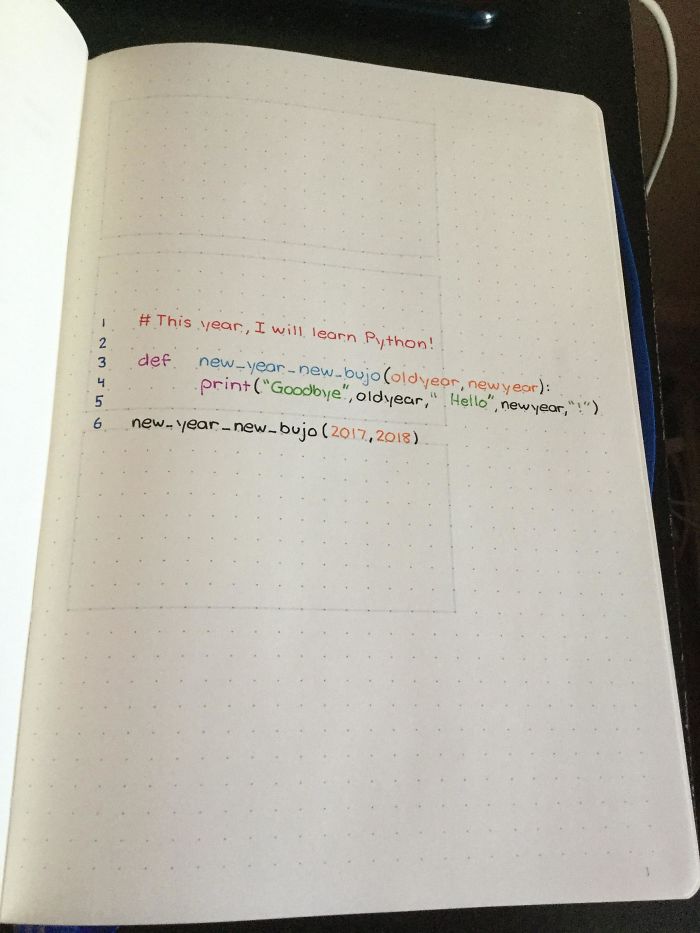 1 # This year, I will learn Python!
2
3 def new_year_new_bujo(oldyear,newyear):
4 print("Goodbye",oldyear," Hello",newyear,"!")
5
6 new_year_new_bujo(2017,2018)
3